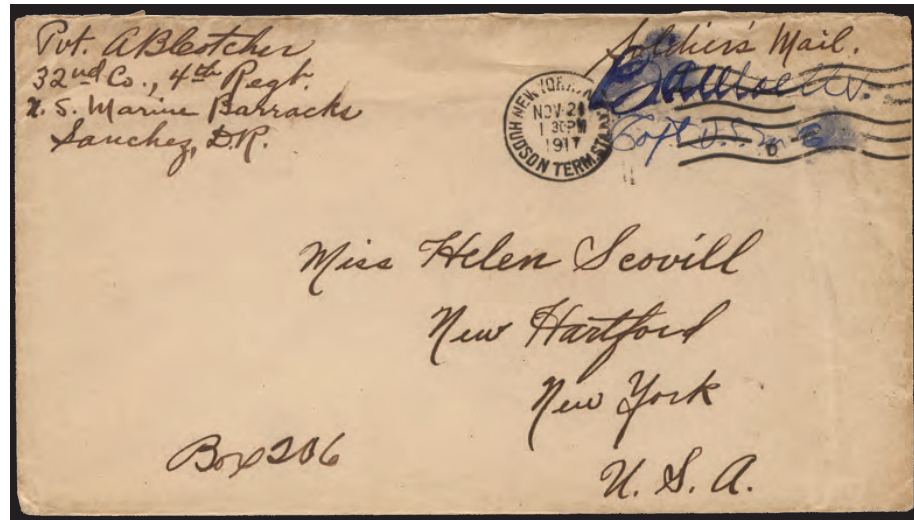 Pvt. A Blotcher
32nd Co., 4th Regt.
U. S. Marine Barracks
Sanchez, D.R.
Soldier's Mail.
Capt U.S.M.C
NEW YORK, N.
NOV 21
1 30 PM
1917
HUDSON TERM. STA.
Miss Helen Scovill
New Hartford
New York
U. S. A.
Box 206